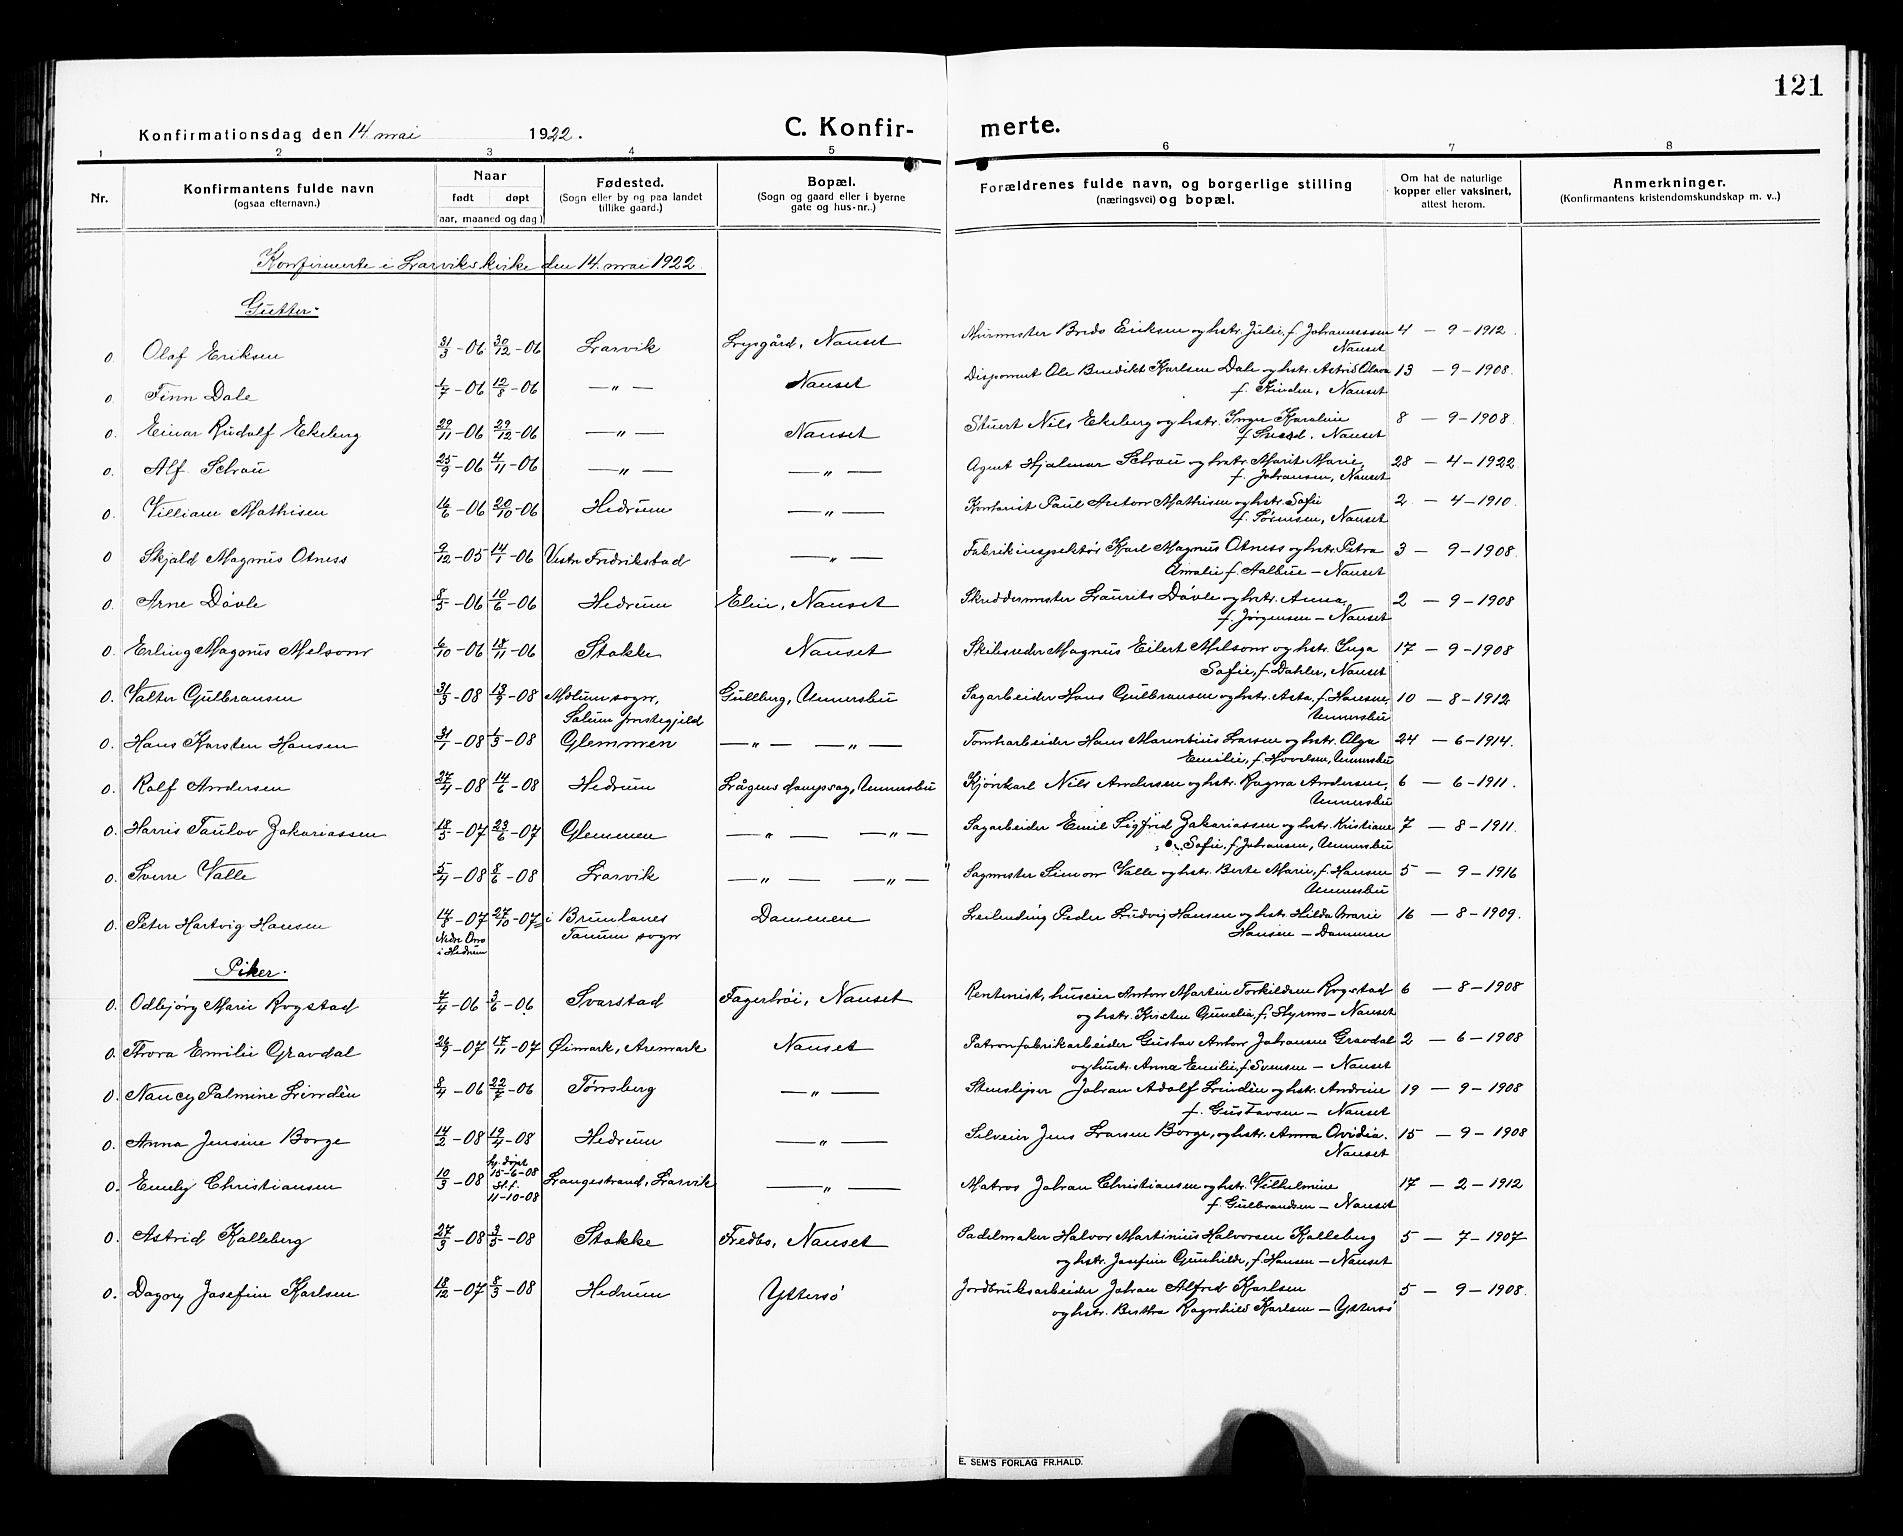 121
Konfirmationsdag den 14. mai 1922.
C. Konfir- merte.
1 2 3 4 5 6 7 8
Nr.
Konfirmantens fulde navn
(ogsaa efternavn.)
Naar
født døpt
(aar, maaned og dag)
Fødested.
(Sogn eller by og paa landet
tillike gaard.)
Bopæl.
(Sogn og gaard eller i byerne
gate og hus-nr..)
Forældrenes fulde navn, og borgerlige stilling
(næringsvei) og bopæl.
Om hat de naturlige
kopper eller vaksinert,
attest herom.
Anmerkninger.
(Konfirmantens kristendomskundskap m. v..)
Konfirmerte i Larviks kirke den 14. mai 1922.
Gutter.
0. Olaf Eriksen 31/3-06 30/12-06 Larvik Lysgård, Nanset Murmester Bredo Eriksen og hstr. Julie, f. Johannessen 4 - 9 - 1912.
Nanset
0. Finn Dale 1/7-06 12/8-06 —"— Nanset Disponent Ole Benedikt Karlsen Dale og hstr. Astrid Olava 13 - 9 - 1908.
f. Skinden, Nanset
0. Einar Rudolf Ekeberg 29/11-06 29/12-06 —"— Nanset Stuert Nils Ekeberg og hstr. Inger Karoline 8 - 9 - 1908.
Nanset
0. Alf Schrau 25/9-06 4/11-06 —"— —"— Agent Hjalmar Schrau og hstr. Marit Marie, 28 - 4 - 1922.
f. Johansen, Nanset
0. Villiam Mathisen 16/6-06 20/10-06 Hedrum —"— Kontorist Paul Anton Mathisen og hstr. Sofie 2 - 4 - 1910.
f. Sörensen, Nanset
0 Skjald Magnus Otness 9/12-05 14/1-06 Vestre Fredrikstad —"— Fabrikinspektör Karl Magnus Otness og hstr. Petra 3 - 9 - 1908.
Amalie f. Aalbue - Nanset
0. Arne Dövle 8/5-06 10/6-06 Hedrum Elin, Nanset Skreddermester Laurits Dövle og hstr. Anna, 2 - 9 - 1908
f. Jörgensen - Nanset
0. Erling Magnus Melsom 6/10-06 18/11-06 Stokke Nanset Skibsreder Magnus Eilert Melsom og hstr. Inga 17 - 9 - 1908
Sofie, f. Dahler, Nanset
0. Valter Gulbransen 31/3-08 13/9-08 Mælum sogn, Gullberg, Unnersbu Sagarbeider Hans Gulbransen og hstr. Asta, f. Hansen, 10 - 8 - 1912
Solum prestegjeld Unnersbu
0. Hans Karsten Hansen 31/1-08 1/3-08 Glemmen —"— —"— Tomtearbeider Hans Marentius Larsen og hstr. Olga 24 - 6 - 1914.
Emilie, f. Hovelsen, Unnersbu
0. Rolf Andersen 27/4-08 14/6-08 Hedrum Lågens dampsag, Unnersbu Kjörekarl Nils Andersen og hstr. Ragna Andersen, 6 - 6 - 1911.
Unnersbu
0. Harris Taulov Zakariassen 18/5-07 23/6-07 Glemmen —"— —"— Sagarbeider Emil Sigfrid Zakariassen og hstr. Kristiane 7 - 8 - 1911.
Sofie, f. Johansen, Unnersbu
0. Sverre Valle 5/4-08 8/6-08 Larvik —"— —"— Sagmester Simon Valle og hstr. Berte Marie, f. Hansen 5 - 9 - 1916
Unnersbu
0. Peter Hartvig Hansen 17/8-07 27/10-07 i Brunlanes Dammen Leilending Peder Ludvig Hansen og hstr. Hilda Marie 16 - 8 - 1909.
Nedre Omo i Hedrum Tanum sogn Hansen - Dammen
Piker.
0. Odbjörg Marie Rogstad 7/4-06 3/6-06 Svarstad Fagerhöi, Nanset Rentenist, huseier Anton Martin Torkildsen Rogstad 6 - 8 - 1908
og hstr. Kristen Gunelia, f. Styrmo - Nanset
0. Thora Emilie Gravdal 24/9-07 17/11-07 Öimark, Aremark Nanset Patronfabrikarbeider Gustav Anton Johanne Gravdal 2 - 6 - 1908
og hustr. Anna Emilie, f. Svensen - Nanset
0. Nancy Palmine Lindén 8/4-06 22/7-06 Tønsberg —"— Stensliper Johan Adolf Lindén og hstr. Andrine 19 - 9 - 1908
f. Gustavsen - Nanset
0. Anna Jensine Borge 14/2-08 19/4-08 Hedrum —"— Selveier Jens Larsen Borge, og hstr. Anna Ovidia. 15 - 9 - 1908
Nanset
0. Emely Christiansen 10/3-08 hj. döpt 15-6-08 st. f. 11-10-08 Langestrand, Larvik —"— Matros Johan Christiansen og hstr. Vilhelmine 17 - 2 - 1912
f. Gulbrandsen - Nanset
0. Astrid Kalleberg 27/3-08 3/5-08 Stokke Fredbo, Nanset Sadelmaker Halvor Martinius Halvorsen Kalleberg 5 - 7 - 1907
og hstr. Josefine Gunhilde, f. Hansen - Nanset
0. Dagny Josefine Karlsen 18/12-07 8/3-08 Hedrum Yttersö Jordbruksarbeider Johan Alfred Karlsen 5 - 9 - 1908.
og hstr. Berthe Ragnhild Karlsen - Yttersö
E. SEM'S FORLAG FR.HALD.